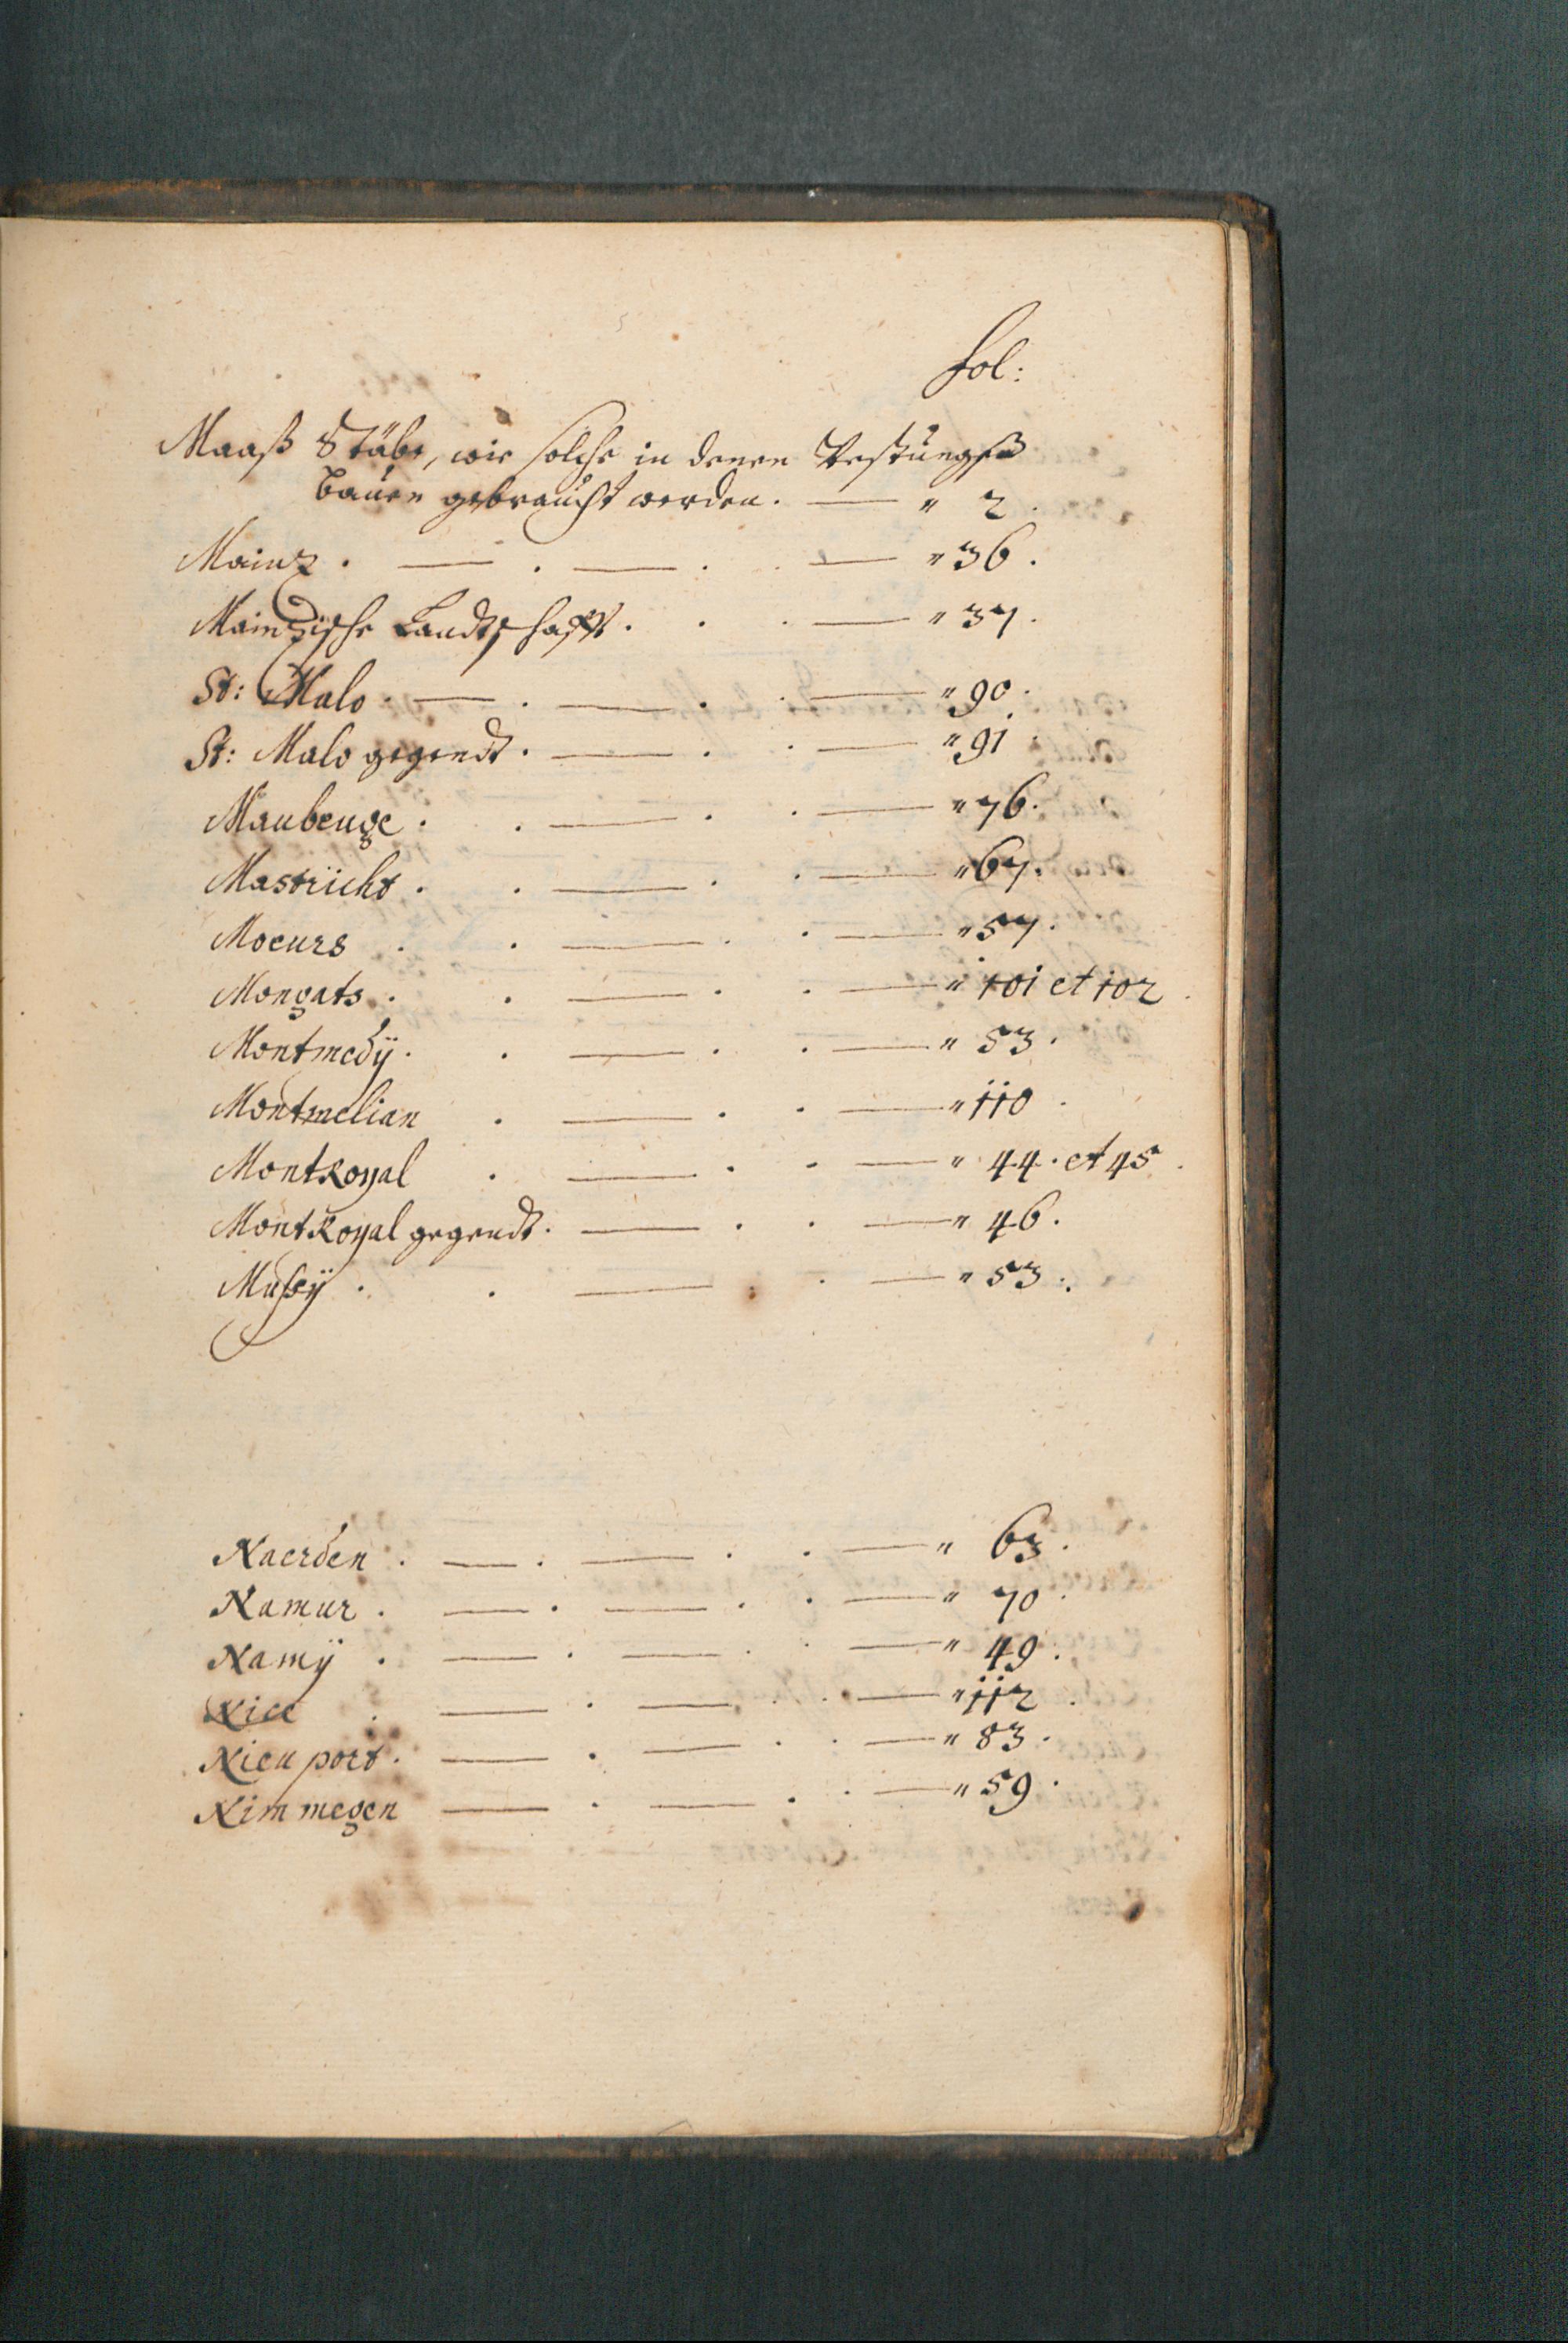 fol:
Maaß Stäbe, wie solche in denen Vestungß
bauen gebraucht werden. — " 2.
Mainz. — . — . . — " 36.
Mainzische Landtschafft. . . — " 37.
St: Malo. — . — . . — " 90.
St: Malo gegendt. — . . — " 91.
Maubeuge. . — . . — " 76.
Mastricht. . — . . — " 67.
Moeurs . . — . . — " 57.
Mongats. . — . . — " 101 et 102.
Montmedÿ. . — . . — " 53.
Montmelian . — . . — " 110.
MontRoyal . — . . — " 44. et 45.
MontRoyal gegendt. — . . — " 46.
Mußÿ. . — . . — " 53.
Naerden. — . — . . — " 63.
Namur. — . — . . — " 70.
Namÿ. — . — . . — " 49.
Nice . — . — . . — " 112.
Nieuport. — . — . . — " 83.
Nimmegen — . — . . — " 59.